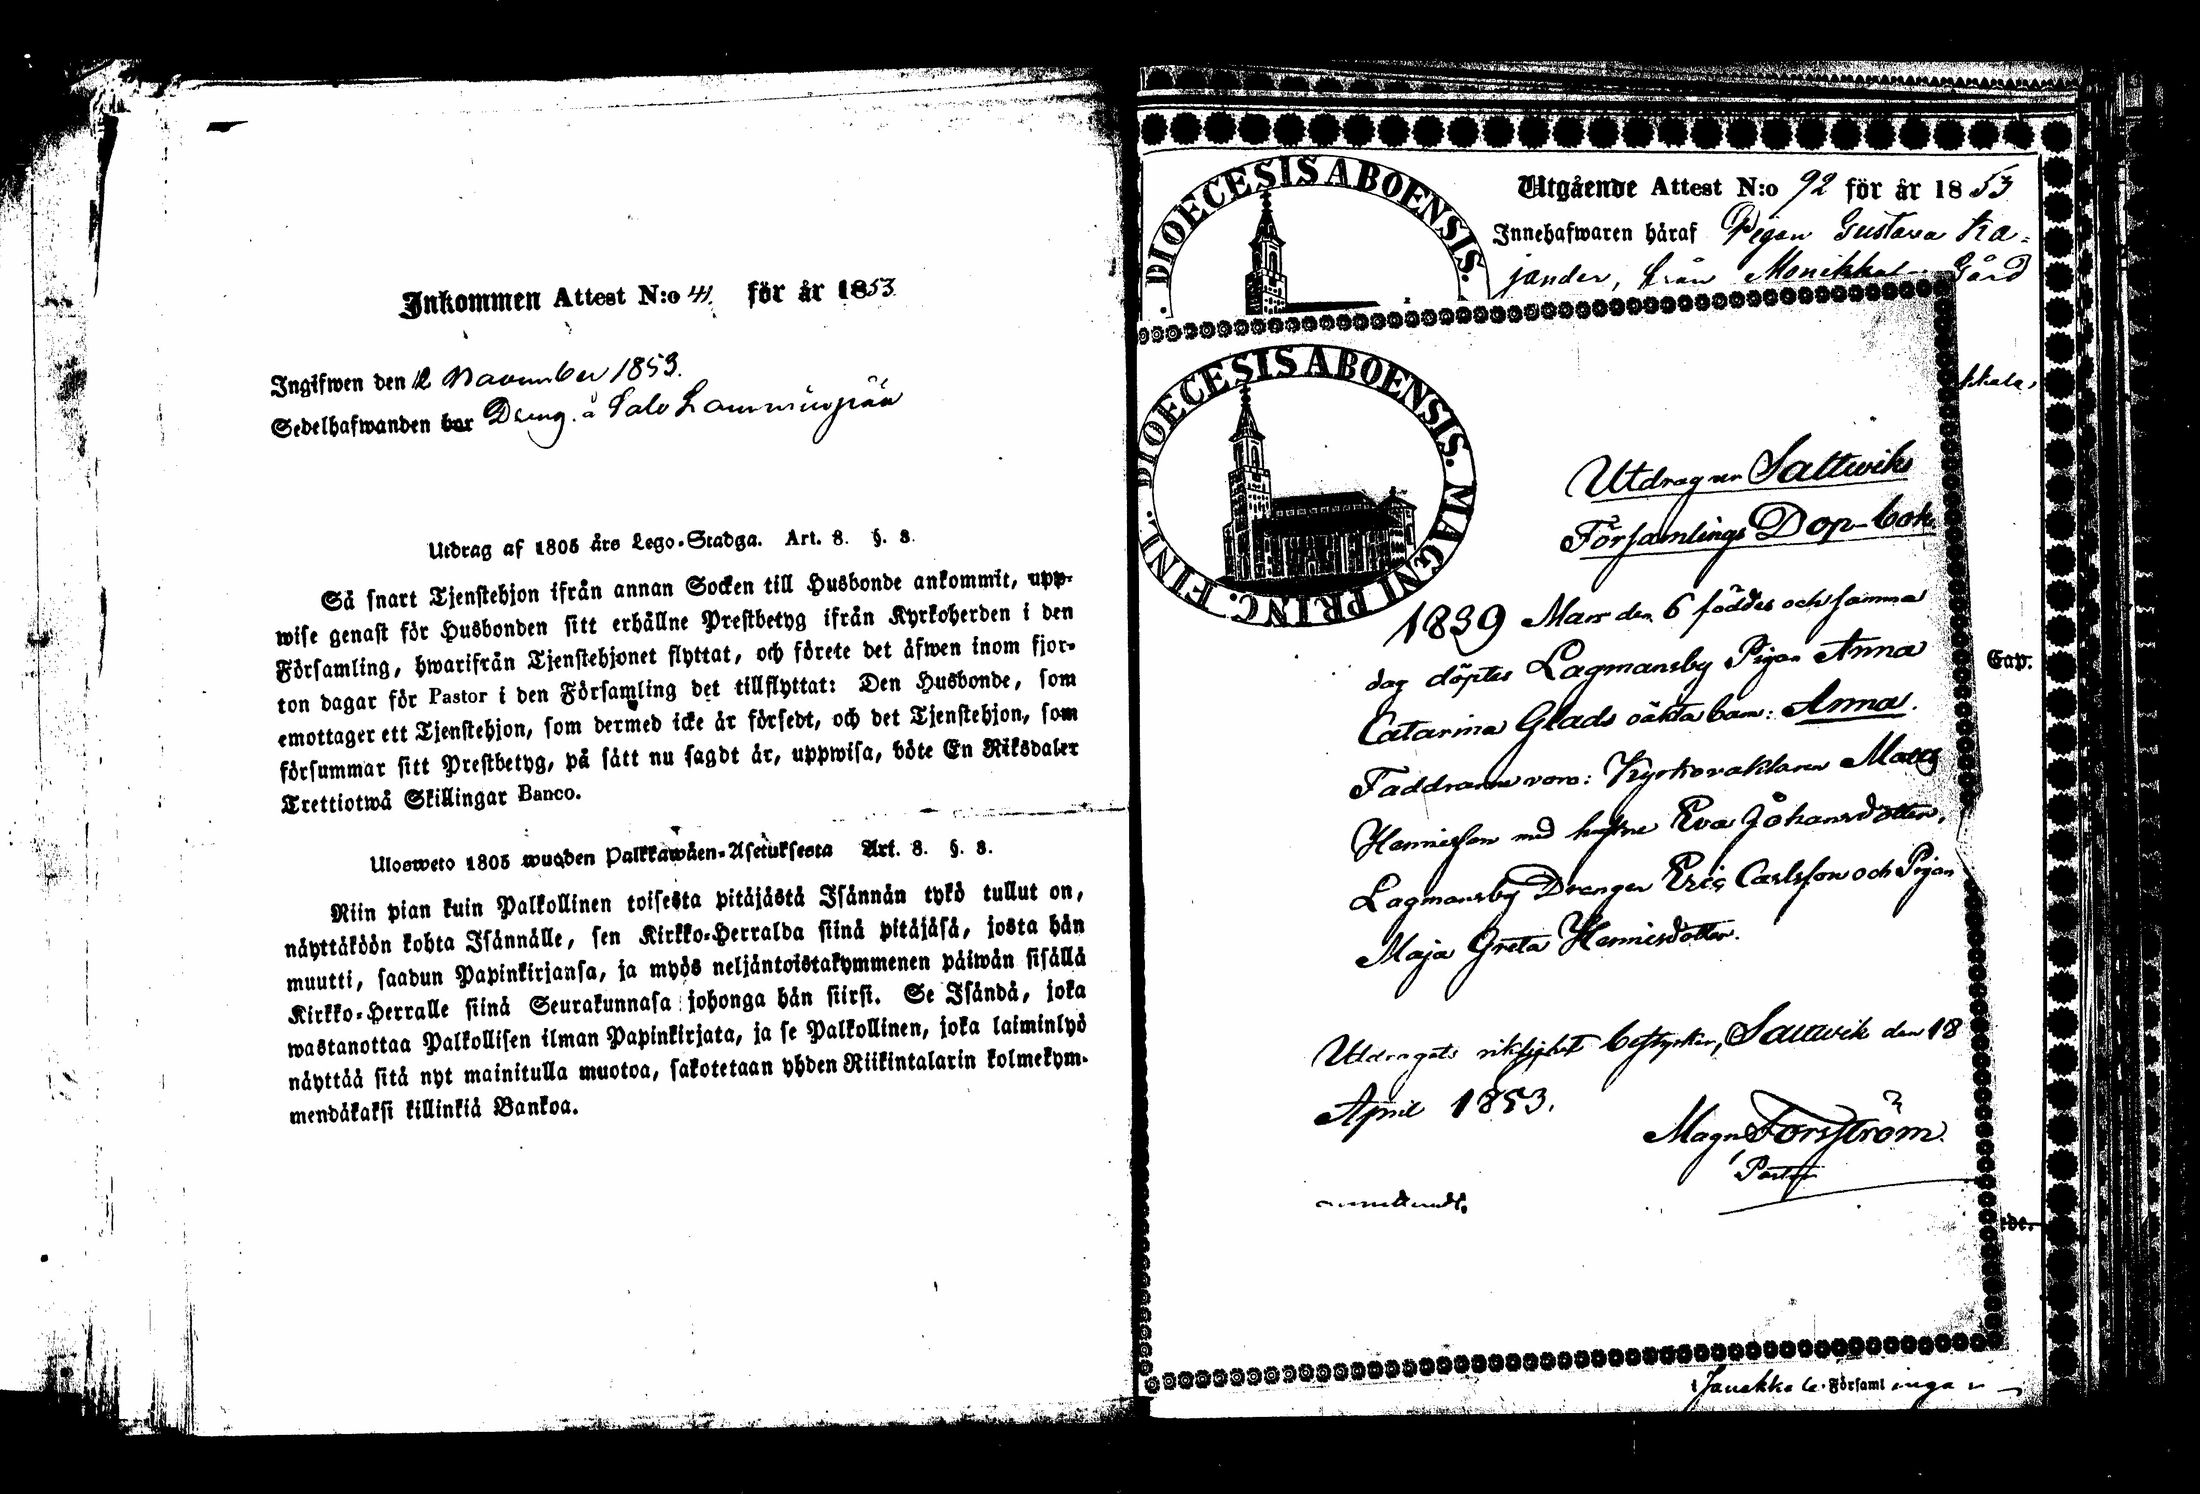 Inkommen Attest N:o 41. för år 1853.
Ingifwen den 12 November 1853.
Sedelhafwanden bar Dreng. å Salo Lammingää
Utdrag af 1805 års Lego-Stadga. Art. 8. §. 3.
Så snart Tjenstehjon ifrån annan Socken till Husbonde ankommit, upp-
wise genast för Husbonden sitt erhållne Prestbetyg ifrån Kyrkoherden i den
Församling, hwarifrån Tjenstehjonet flyttat, och förete det äfwen inom fjor-
ton dagar för Pastor i den Församling det tillflyttat: Den Husbonde, som
emottager ett Tjenstehjon, som dermed icke är försedt, och det Tjenstehjon, som
försummar sitt Prestbetyg, på sätt nu sagdt är, uppwisa, böte En Riksdaler
Trettiotwå Skillingar Banco.
Ulosweto 1805 wuoden Palkkawäen-Asetuksesta Art. 8. §. 3.
Niin pian kuin Palkollinen toisesta pitäjästä Isännän tykö tullut on,
näyttäköön kohta Isännälle, sen Kirkko-Herralda siinä pitäjäsä, josta hän
muutti, saadun Papinkirjansa, ja myös neljäntoistakymmenen päiwän sisällä
Kirkko-Herralle siinä Seurakunnasa johonga hän siirsi. Se Isändä, joka
wastanottaa Palkollisen ilman Papinkirjata, ja se Palkollinen, joka laiminlyö
näyttää sitä nyt mainitulla muotoa, sakotetaan yhden Riikintalarin kolmekym-
mendäkaksi killinkiä Bankoa.
DIOECESIS ABOENSIS.
Utgående Attest N:o 92 för år 1853
Innehafwaren häraf Pigan Gustava Ka-
jander, från Monikkala Gård
kkala,
DIOECESIS ABOENSIS. MAGNI PRINC. FINL.
Utdrag ur Saltwiks
Församlings Dop-bok
1839 Mars den 6 föddes och samma
dag döptes Lagmansby Pigan Anna
Catarina Glads oäkta barn: Anna.
Faddrarne voro: Kyrkovaktaren Mats
Hennisson med hustru Eva Johansdotter,
Lagmansby Drengen Eric Carlsson och Pigan
Maja Greta Hennisdotter.
Cap.
Utdragets riktighet bestyrker, Saltwik den 18
April 1853.
Magn Forsström
Pastor
ede.
i Janakkala Församl inga